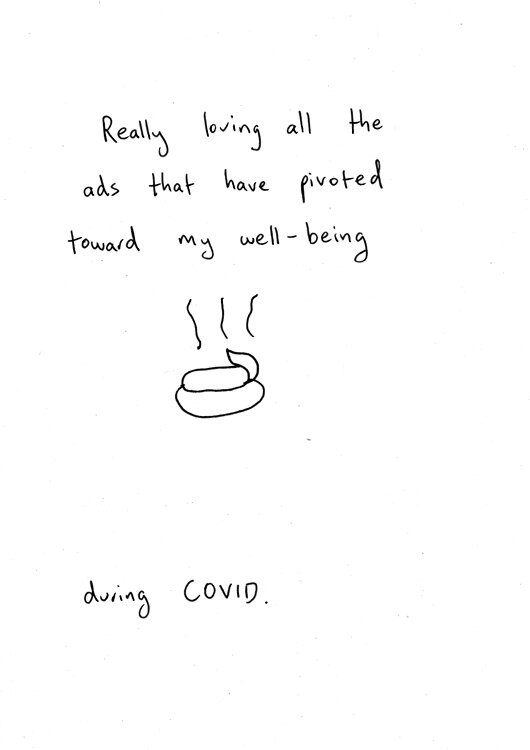 Really loving all the
ads that have pivoted
toward my well-being
during COVID.